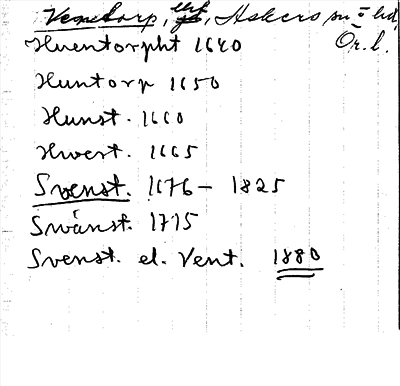 Venstorp, Askers sn o. hd,
Ör. l.
Hventorpht 1640
Huntorp 1650
Hunst. 1660
Hwest. 1665
Svenst. 1676 - 1825
Swänst. 1715
Svenst. el. Vent. 1880